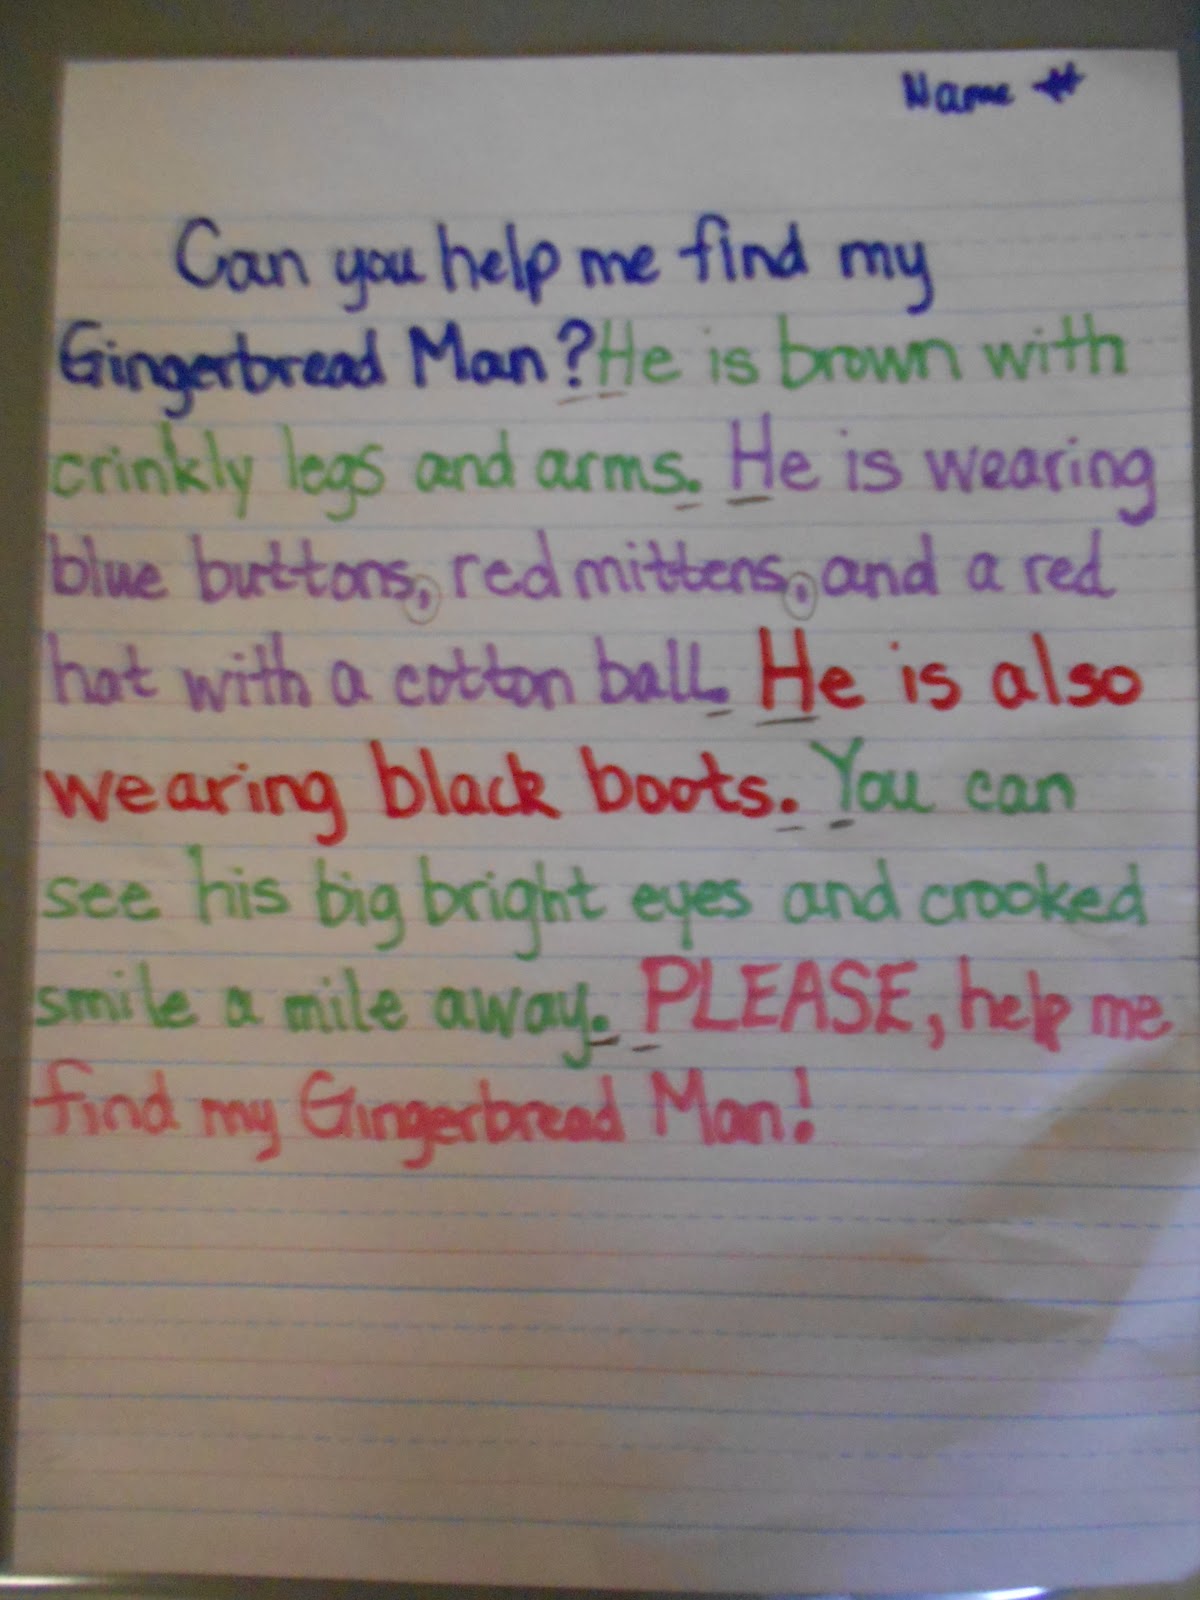 Name #
Can you help me find my
Gingerbread Man? He is brown with
crinkly legs and arms. He is wearing
blue buttons, red mittens, and a red
hat with a cotton ball. He is also
wearing black boots. You can
see his big bright eyes and crooked
smile a mile away. PLEASE, help me
find my Gingerbread Man!